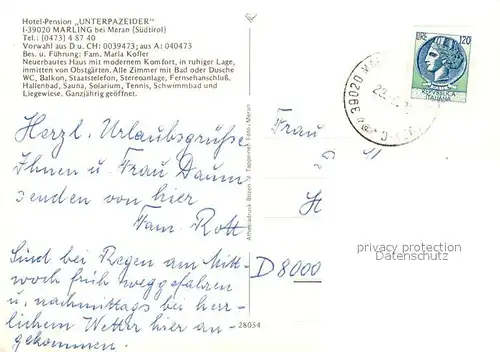 Hotel-Pension „UNTERPAZEIDER"
I-39020 MARLING bei Meran (Südtirol)
Tel.: (0473) 4 87 40
Vorwahl aus D u. CH: 0039473; aus A: 040473
Bes. u. Führung: Fam. Maria Kofler
Neuerbautes Haus mit modernem Komfort, in ruhiger Lage,
inmitten von Obstgärten. Alle Zimmer mit Bad oder Dusche
WC, Balkon, Staatstelefon, Stereoanlage, Fernsehanschluß,
Hallenbad, Sauna, Solarium, Tennis, Schwimmbad und
Liegewiese. Ganzjährig geöffnet.
Herzl. Urlaubsgrüße
Ihnen u. Frau Daum
senden von hier
Fam. Rott
Sind bei Regen am Mitt-
woch früh weggefahren
u. nachmittags bei herr-
lichem Wetter hier an-
gekommen.
28054
Athesiadruck Bozen Tappeiner Foto - Meran
LIRE 120
REPUBBLICA
ITALIANA
39020
Frau
H
D 8000
privacy protection
Datenschutz